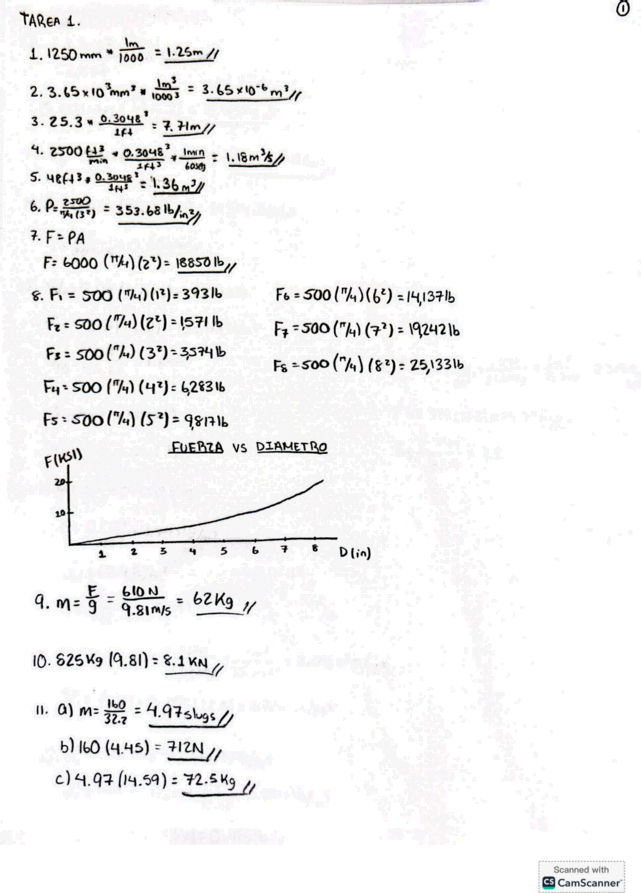 ①
TAREA 1.
1. 1250 mm * 1m/1000 = 1.25m //
2. 3.65 x 10³ mm³ * 1m³/1000³ = 3.65 x 10⁻⁶ m³ //
3. 25.3 * 0.3048³/1ft = 7.71m //
4. 2500 ft3/min * 0.3048³/1ft³ * 1min/60seg = 1.18 m³/s //
5. 48ft3 * 0.3048³/1ft³ = 1.36 m³ //
6. P= 2500/π/4 (3²) = 353.68 lb/in² //
7. F = PA
F= 6000 (π/4) (2²) = 18850 lb //
8. F1 = 500 (π/4) (1²) = 393 lb
F2 = 500 (π/4) (2²) = 1,571 lb
F3 = 500 (π/4) (3²) = 3,534 lb
F4 = 500 (π/4) (4²) = 6,283 lb
F5 = 500 (π/4) (5²) = 9,817 lb
F6 = 500 (π/4) (6²) = 14,137 lb
F7 = 500 (π/4) (7²) = 19,242 lb
F8 = 500 (π/4) (8²) = 25,133 lb
FUERZA VS DIAMETRO
F(KSI)
20
10
1 2 3 4 5 6 7 8 D(in)
9. m = F/g = 610 N/9.81 m/s = 62 Kg //
10. 825 Kg (9.81) = 8.1 KN //
11. a) m = 160/32.2 = 4.97 slugs //
b) 160 (4.45) = 712N //
c) 4.97 (14.59) = 72.5 Kg //
Scanned with
CS CamScanner